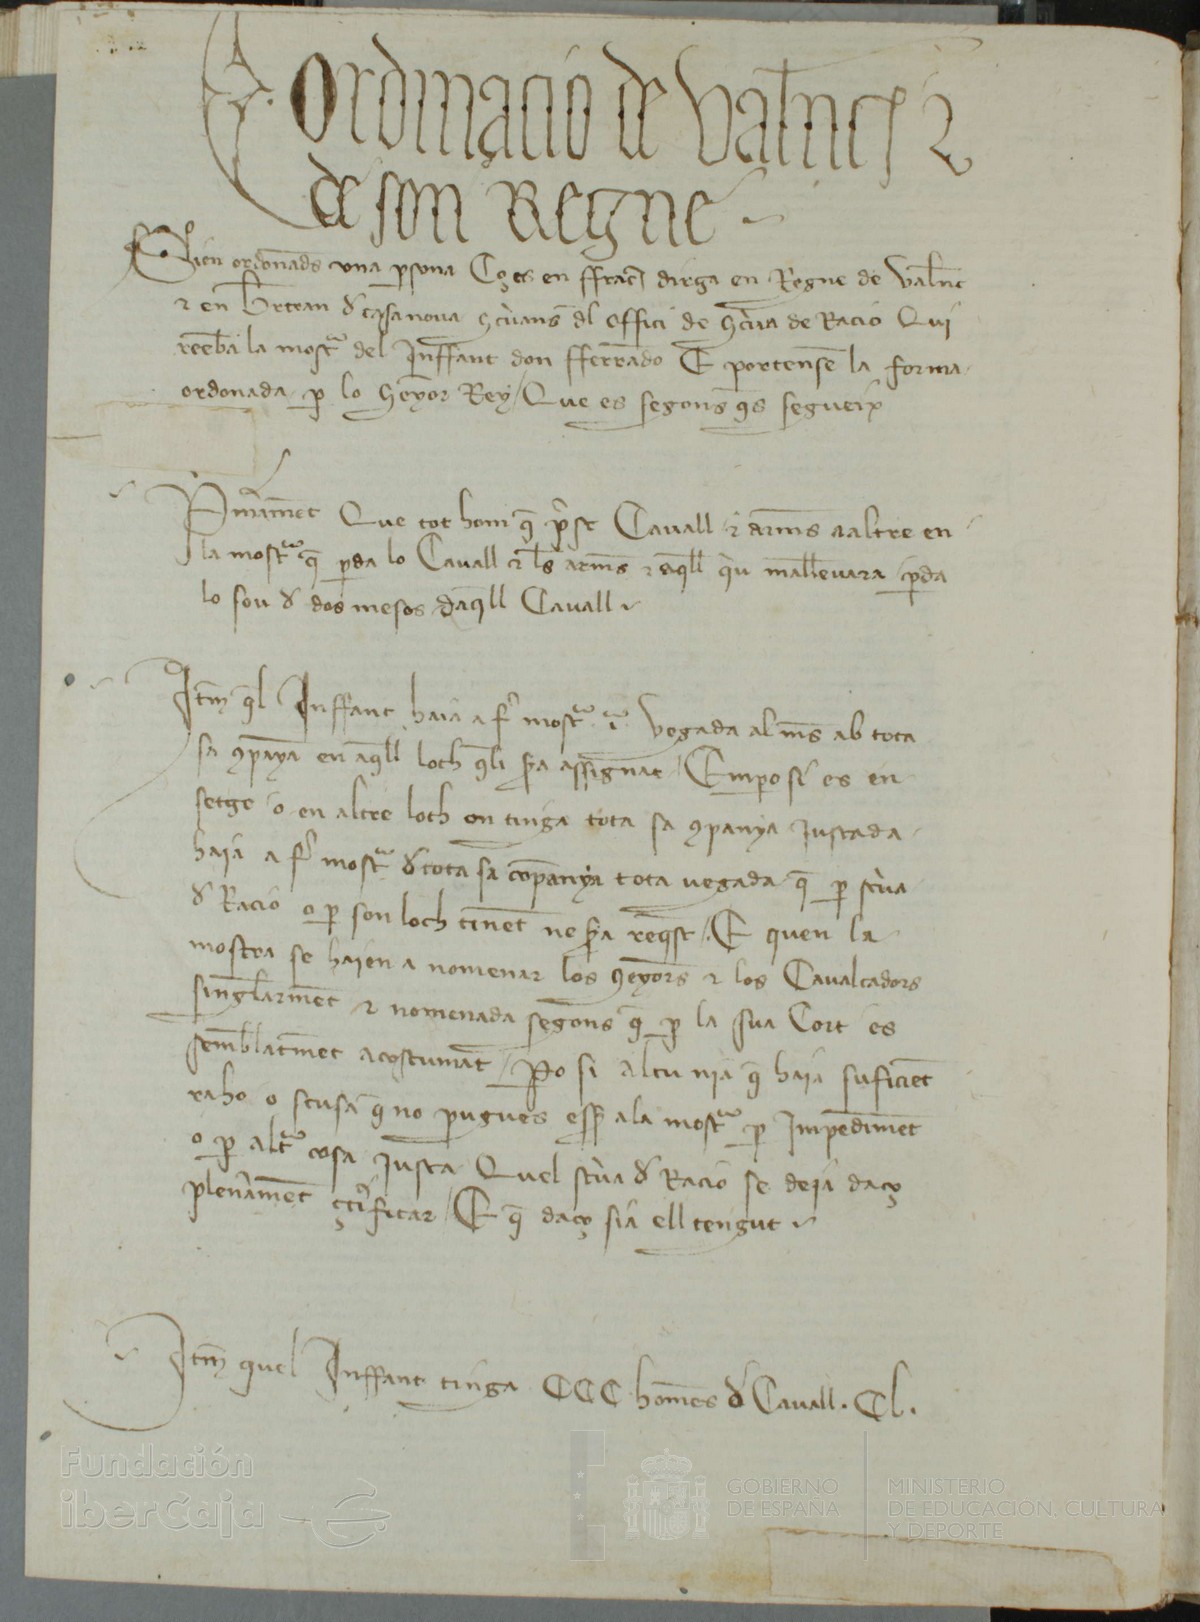 ordinacio de valnc̄ ⁊
de son Regne
Sien ordonads̄ vna p̱sona Ço es en ffrac̄ dirga en Regne de Valn̄c
⁊ en Br̄tran d̄ casanova sc̀uans d̄l offici de sc̀ua de Racio Qui
reeb̄a la most̃ᵃ del Inffant don fferrando E portense la forma
ordonada p̱ lo Senȳor Rey / Que es segons ꝯs segueix
Pm̃amēt Que tot hom q̄ p̃st Cavall ⁊ arm̄s a altre en
la most̃ᵃ q̄ p̱da lo Cavall ⁊ ls̄ arm̄s ⁊ aq̄ll qùi mall̄evara p̱da
lo sou d̄ dos mesos daq̄ll Cavall
Itm̄ q̄l Inffant haia a f̃ most̃ᵃ ĩᵃ vegada alm̄s ab tota
sa ꝯpaȳa en aq̄ll loch q̄li s̄ra assignat / Emp̱o si es en
setge o en altre loch on tinga tota sa ꝯpanya Iustada
haia a f̃ most̃ᵃ d̄ tota sa cōpanya tota vegada q̄ p̱ sc̀ua
d̄ Racio o p̱ son loch tinēt ne s̄ra req̄st / E quen la
mostra se haien a nomenar los Senȳors ⁊ los Cavalcadors
singl̄armēt ⁊ nomenada segons q̄ p̱ la sua Cort es
sembl̄atmēt acostumat̄ / Po̱ si alcu nia q̄ haia suficiēt
raho o scusa q̄ no pugues ess̄ ala most̃ᵃ p̱ Impedimēt
o p̱ alt̃ᵃ cosa Iusta Quel sc̀ua d̄ Racio se deia daço
plenamēt çt̃ificar / E q̄ daço sia ell tengut
Itm̄ quel Inffant tinga CCC homēs d̄ Cavall . CL .
Fundación
iberCaja
GOBIERNO
DE ESPAÑA
MINISTERIO
DE EDUCACIÓN, CULTURA
Y DEPORTE